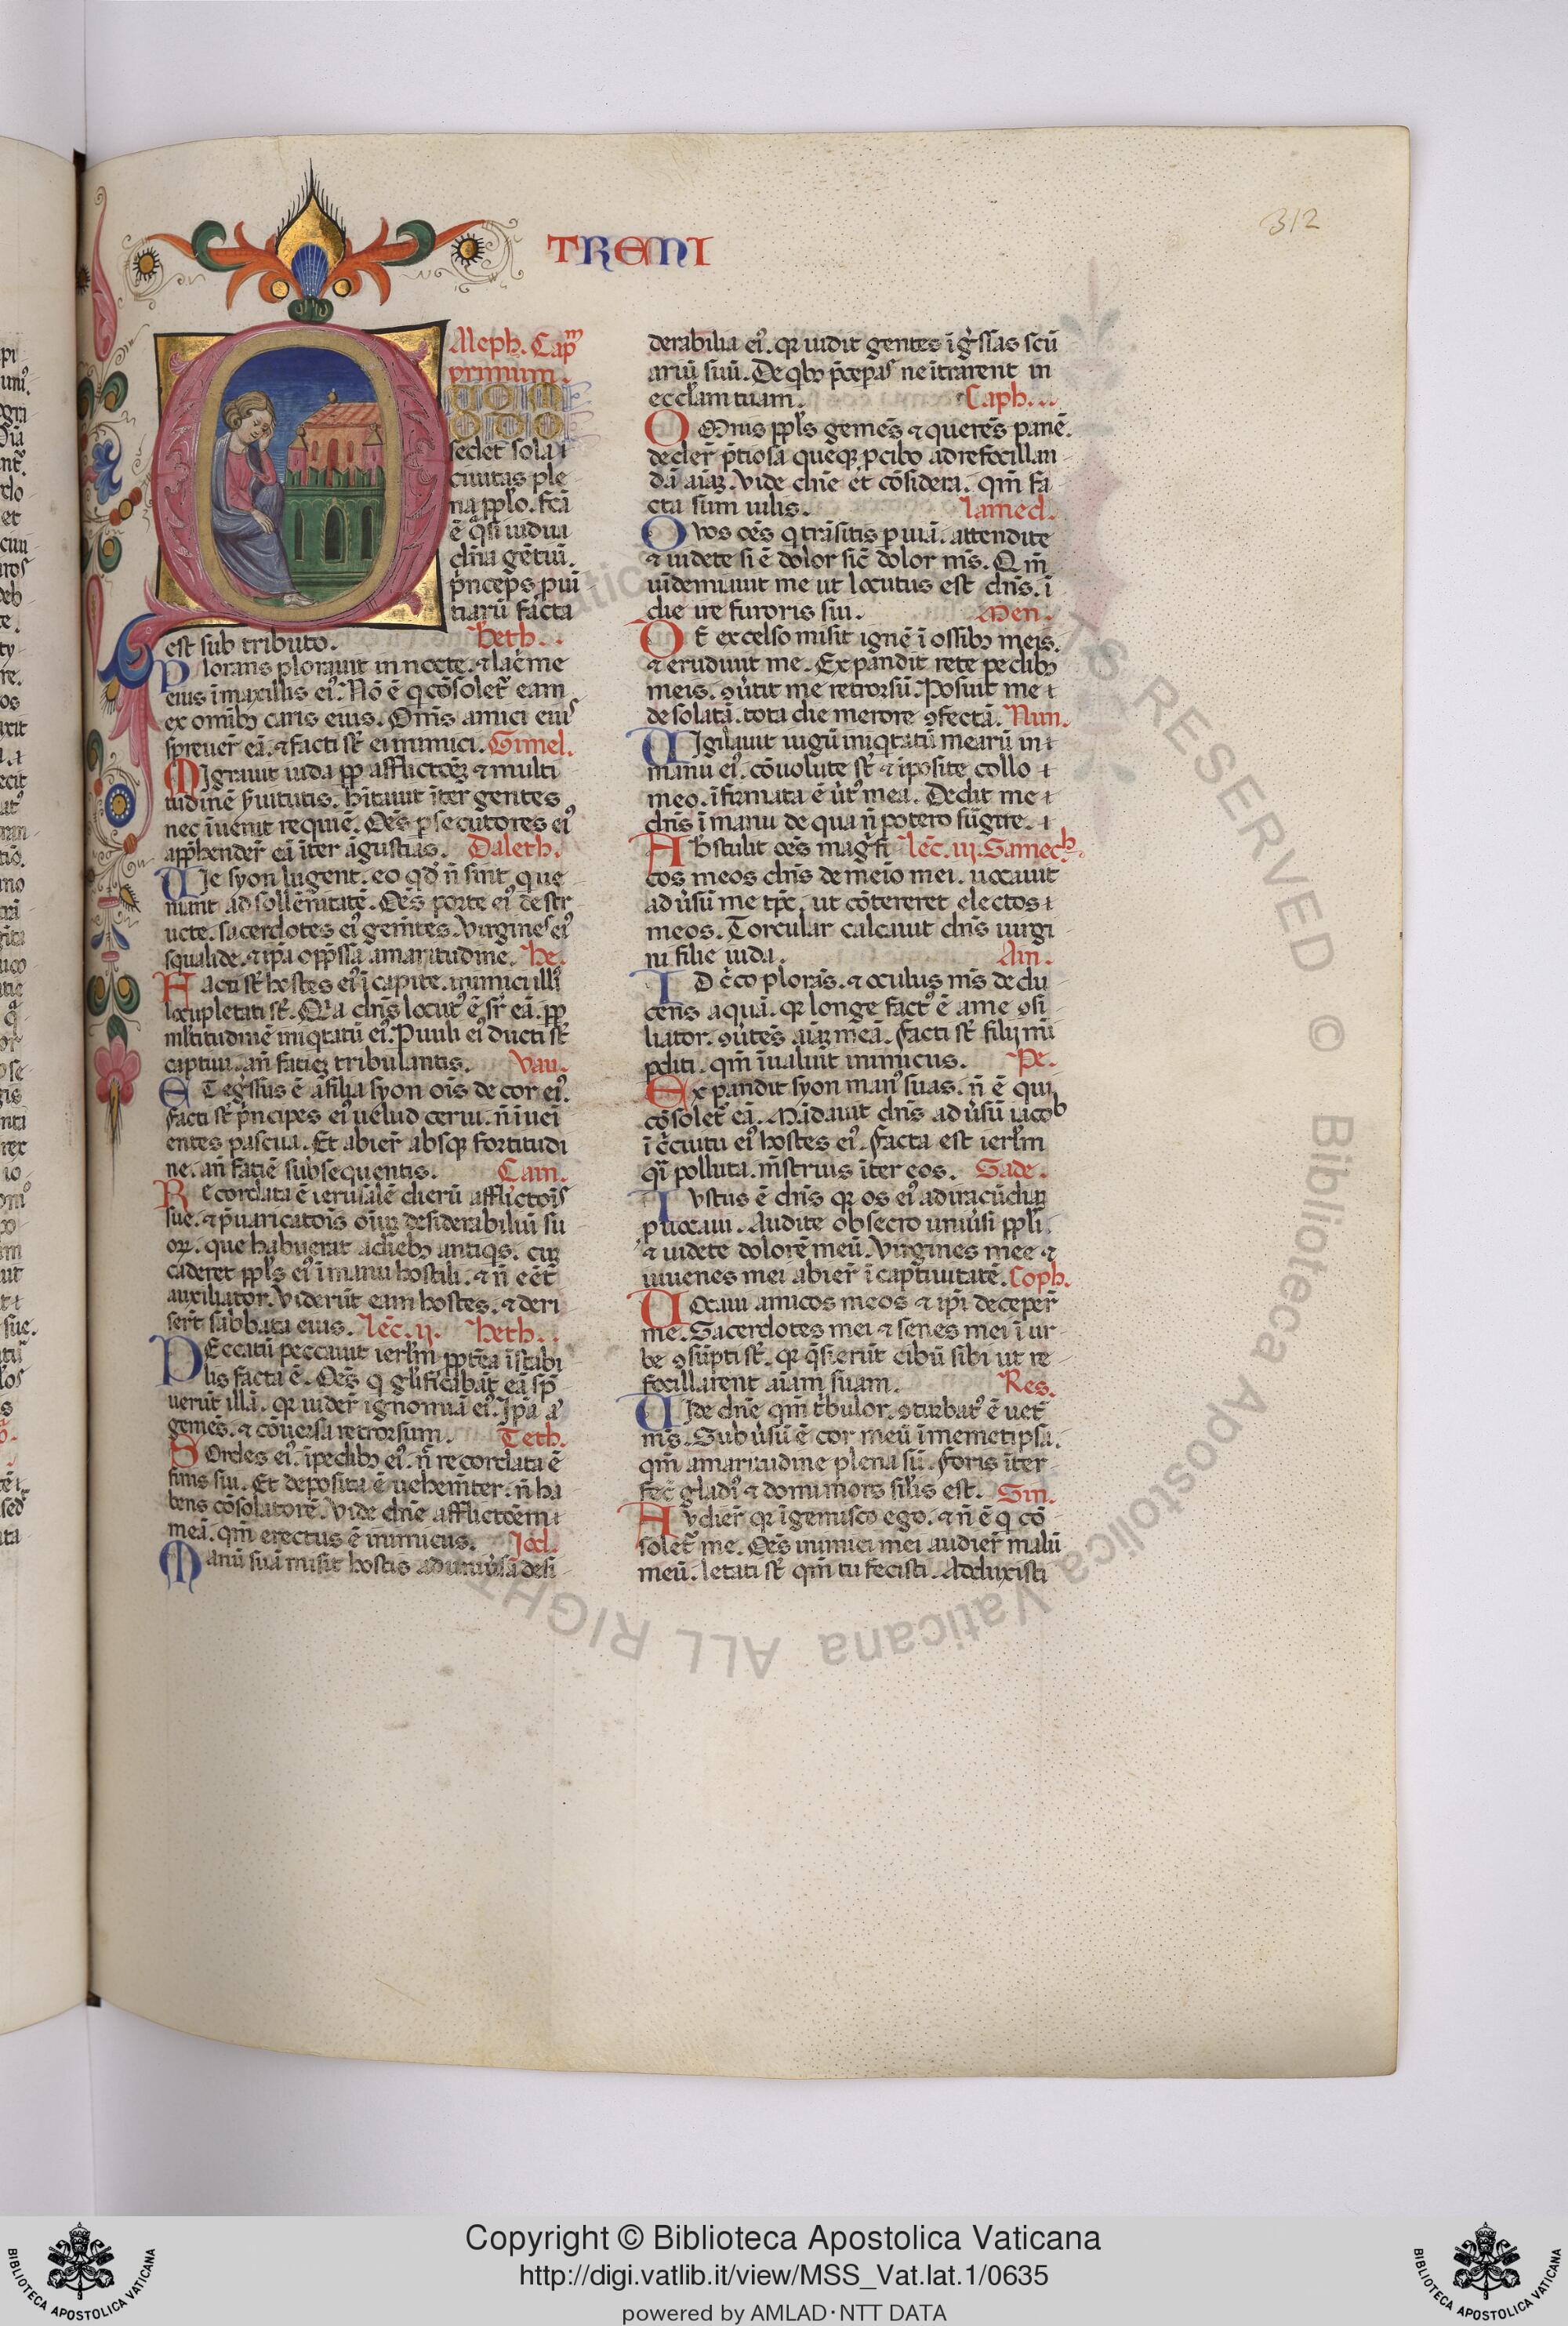 TRENI
312
Aleph. Capm
primum.
UOMO
DODO
sedet sola ı
ciuitas ple
na ppło. fcã
ẽ q̃si uidua
dñia gẽtiuʒ.
p̃nceps puĩ
tiarũ facta
est sub tributo. Beth.
Plorans plorauit in nocte. ⁊ lac̃me
eius ĩ maxillis eiꝰ. Nõ ẽ q cõsolet̃ eam
ex omĩbꝫ caris eius. Omñs amici eiuꝰ
spreuer̃ eã. ⁊ facti st̃ ei inimici. Gimel.
Migrauit iuda pp afflictõeʒ ⁊ multi
tudinẽ s̃uitutis. hitauit ĩter gentes
nec ĩuenit requiẽ. Oẽs psecutores eiꝰ
app̃hender̃ eã ĩter ãgustias. Daleth.
Uie syon lugent. eo qđ ñ sint que
niant ad sollẽnitatẽ. Oẽs porte eiꝰ destr
ucte. sacerdotes eiꝰ gem̃tes. Virgines eiꝰ
squalide. ⁊ ip̃a opp̃ssa amaritudine. he.
Facti st̃ hostes eiꝰ ĩ capite. inimici illiꝰ
locupletati st̃. Qia dñs locutꝰ ẽ sr̃ eã. pp
ml̃titudinẽ iniqtatũ eiꝰ. Puuli eiꝰ ducti st̃
captiui. añ fatieʒ tribulantis. Vau.
ET eg̃ssus ẽ a filia syon oĩs decor eiꝰ.
facti st̃ p̃ncipes eiꝰ uelud cerui. ñ ĩuei
entes pascua. Et abier̃ absqʒ fortitudi
ne. añ fatiẽ subsequentis. Cain.
Recordata ẽ ierusalẽ dierũ afflictoĩs
sue. ⁊ p̃uaricatoĩs oĩuʒ desiderabiliũ su
oꝝ. que habuerat a diebꝫ antiqs. cuʒ
caderet ppl̃s eiꝰ ĩ manu hostili. ⁊ ñ eẽt̃
auxiliator. Viderũt eam hostes. ⁊ deri
sert̃ sabbata eius. Lec̃. ij. heth.
PEccatũ peccauit ierl̃m ppt̃ea ĩstabi
lis facta ẽ. Oẽs q gl̃ificabãt eã sp̃
uerũt illã. qꝛ uider̃ ignomiã eiꝰ. Ip̃a aꝰ
gemẽs. ⁊ cõuersa retrorsum. Teth.
SOrdes eiꝰ. ĩ pedibꝫ eiꝰ. ñ recordata ẽ
finis sui. Et deposita ẽ uehem̃ter. ñ ha
bens cõsolatorẽ. Vide dñe afflictõem ı
meã. qm̃ erectus ẽ inimicus. Iod.
Manũ suã misit hostis ad uniũsã desi
derabilia eiꝰ. qꝛ uidit gentes ĩg̃ssas scũ
ariũ suũ. De qbꝫ p̃cepas̃ ne ĩtrarent in
eccl̃am tuam. Caph.
OMnis ppl̃s gemẽs ⁊ querẽs panẽ.
deder̃ p̃tiosa queqʒ p cibo ad refocillan
dã aĩaʒ. Vide dñe et cõsidera. qm̃ fa
cta sum uilis. Lamed.
O vos oẽs q trãsitis p uiã. attendite
⁊ uidete si ẽ dolor sic̃ dolor mẽs. Qm̃
uĩdemiauit me ut locutus est dñs. ĩ
die ire furoris sui. Mem.
DE excelso misit ignẽ ĩ ossibꝫ meis.
⁊ erudiuit me. Expandit rete pedibꝫ
meis. ꝯũtit me retrorsũ. Posuit me ı
desolatã. tota die merore ꝯfectã. Nun.
UIgilauit iugũ iniqtatũ mearũ in ı
manu eiꝰ. cõuolute st̃ ⁊ ĩposite collo ı
meo. ĩfirmata ẽ ũtꝰ mea. Dedit me ı
dñs ĩ manu de qua ñ potero sũgere. ı
Abstulit oẽs magĩfi Lec̃. iij. Samech.
cos meos dñs de meĩo mei. uocauit
ad ũsũ me tp̃c. ut cõtereret electos ı
meos. Torcular calcauit dñs uirgi
ni filie iuda. Ain.
ID c̃co plorãs. ⁊ oculus mẽs dedu
cens aquã. qꝛ longe factꝰ ẽ a me ꝯso
liator. ꝯũtẽs aĩaʒ meã. facti st̃ filij mĩ
pditi. qm̃ ĩualuit inimicus. Pe.
Expandit syon manꝰ suas. ñ ẽ qui
cõsolet̃ eã. Mãdauit dñs ad ũsũ iacob
ĩ c̃cuitu eiꝰ hostes eiꝰ. facta est ierl̃m
q̃i polluta. m̃struis ĩter eos. Sade.
Iustus ẽ dñs qꝛ os eiꝰ ad iracũdiaʒ
puocaui. Audite obsecro uniũsi ppl̃i.
⁊ uidete dolorẽ meũ. Virgines mee ⁊
iuuenes mei abier̃ ĩ captiuitatẽ. Coph.
UOcaui amicos meos ⁊ ip̃i deceper̃
me. Sacerdotes mei ⁊ senes mei ĩ ur
be ꝯsũpti st̃. qꝛ q̃sierũt cibũ sibi ut re
focillarent aĩam suam. Res.
UIde dñe qm̃ t̃bulor. ꝯturbatꝰ ẽ uet̃
mẽs. Subũsũ ẽ cor meũ ĩ memetipsa.
qm̃ amaritudine plena sũ. foris ĩter
fec̃ gladiꝰ ⁊ domi mors sil̃is est. Sin.
Audier̃ qꝛ ĩgemisco ego. ⁊ ñ ẽ q cõ
solet̃ me. Oẽs inimici mei audier̃ malũ
meũ. letati st̃ qm̃ tu fecisti. Adduxisti
ALL RIGHTS RESERVED © Biblioteca Apostolica Vaticana
Copyright © Biblioteca Apostolica Vaticana
http://digi.vatlib.it/view/MSS_Vat.lat.1/0635
powered by AMLAD·NTT DATA
BIBLIOTECA APOSTOLICA VATICANA
BIBLIOTECA APOSTOLICA VATICANA